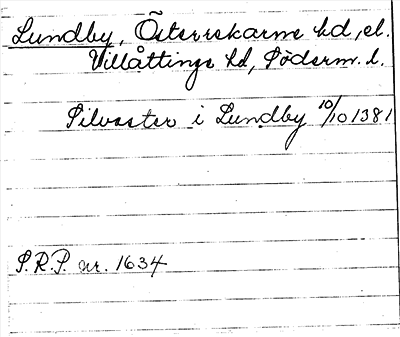 Lundby, Österrekarne hd, el.
Villåttinge hd, Söderm. l.
Silvaster i Lundby 10/10 1381
S.R.P. nr. 1634